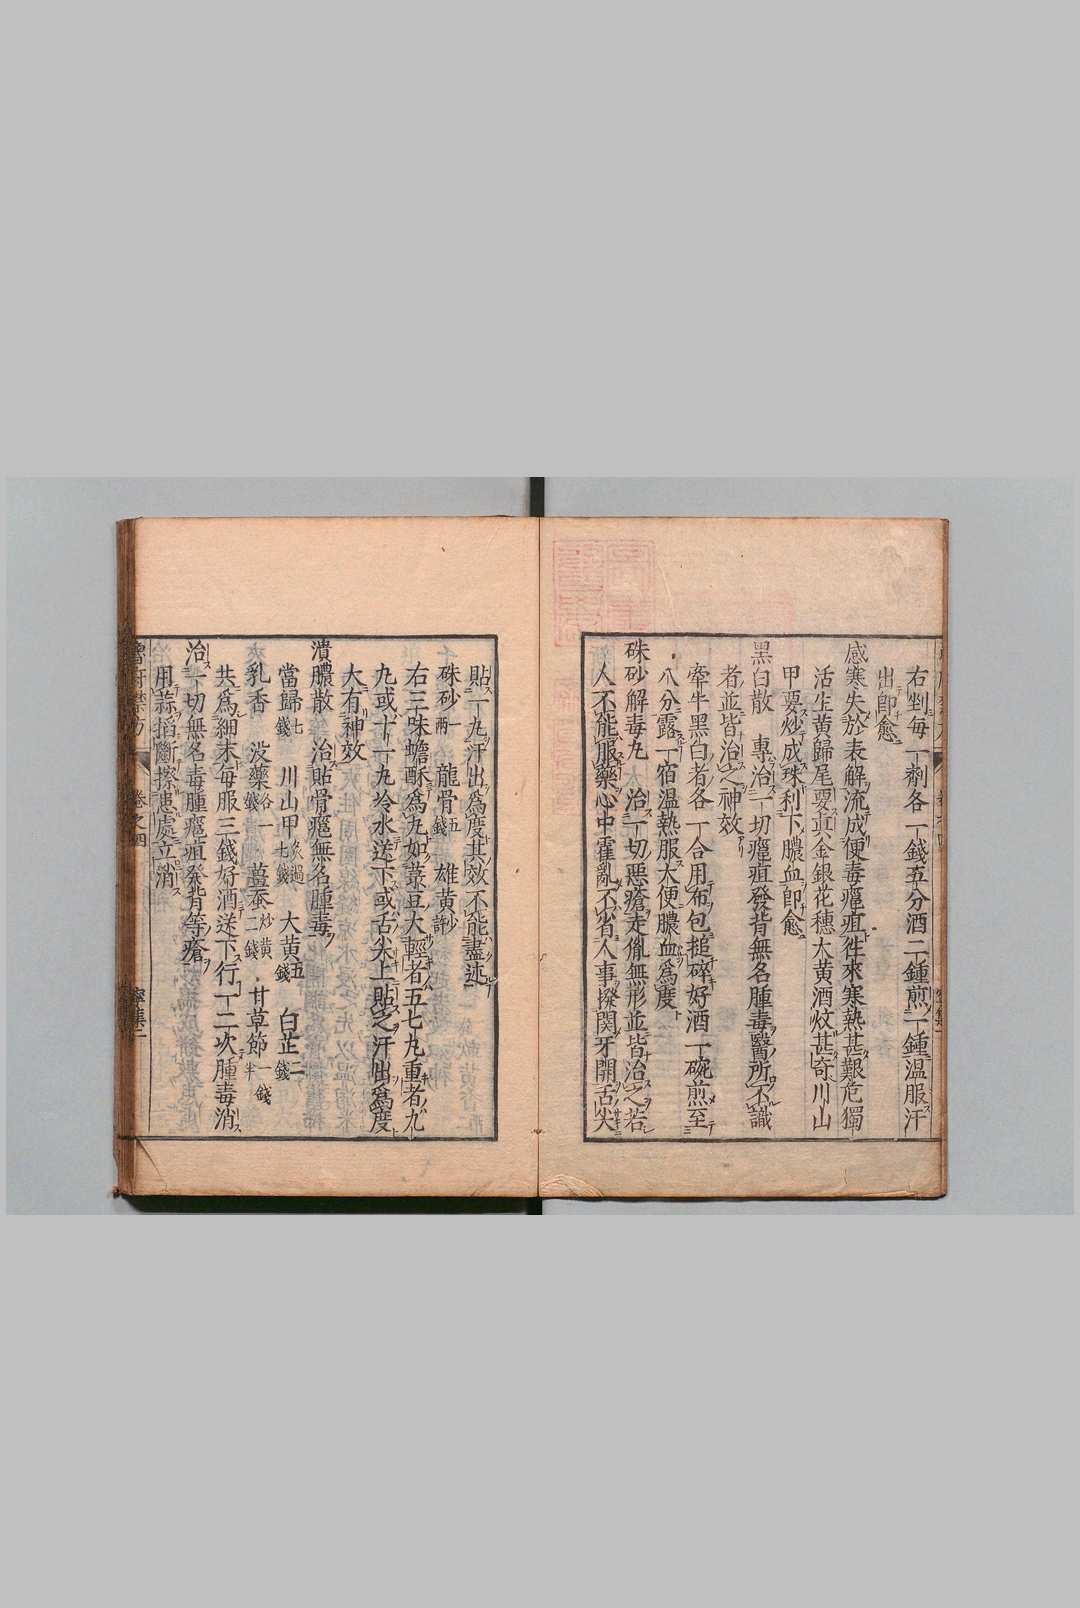 右剉毎一剤各一錢五分酒二鍾煎一鍾温服汗
出卽愈
感寒失於表解流成便毒癰疽徃來寒熱甚艱危獨
活生黄歸尾要真金銀花穗大黄酒炆甚奇川山
甲要炒成珠利下膿血卽愈
黑白散　專治一切癰疽發背無名腫毒醫所不識
者並皆治之神效
牽牛黑白者各一合用布包搥碎好酒一碗煎至
八分露一宿温熱服大便膿血爲度
硃砂解毒丸　治一切惡瘡走胤無形並皆治之若
人不能服藥心中霍亂不省人事撥関牙開舌尖
貼一丸汗出爲度其效不能盡述
硃砂一兩　龍骨五錢　雄黄少許
右三味蟾酥爲丸如菉豆大輕者五七丸重者九
丸或十一丸冷水送下或舌尖上貼之汗出爲度
大有神效
潰膿散　治貼骨癰無名腫毒
當歸七錢　川山甲炙過七錢　大黄五錢　白芷二錢
乳香　没藥各一錢　薑蚕炒黄二錢　甘草節一錢半
共爲細末毎服三錢好酒送下行十二次腫毒消
治一切無名毒腫癰疽発背等瘡
用蒜搯斷擦患處立消
魯府禁方　卷之四　寧集二